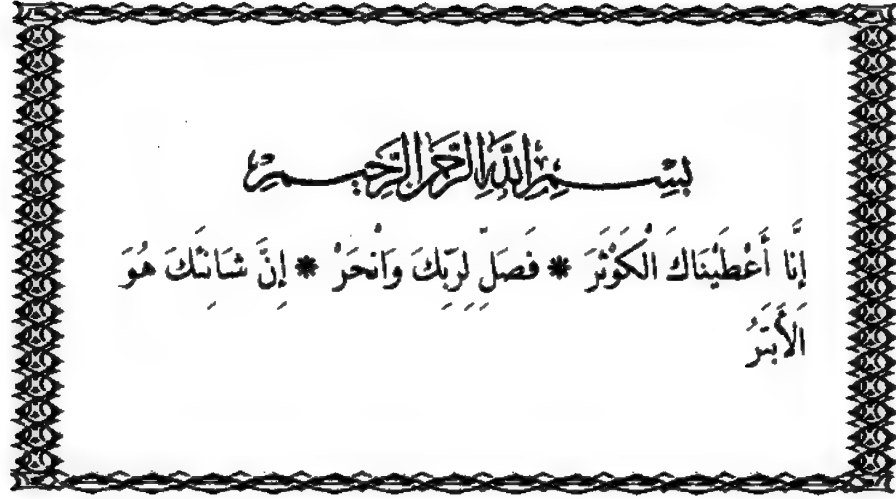 بِسْمِ اللَّهِ الرَّحْمَنِ الرَّحِيمِ
إِنَّا أَعْطَيْنَاكَ الْكَوْثَرَ * فَصَلِّ لِرَبِّكَ وَانْحَرْ * إِنَّ شَانِئَكَ هُوَ
الأَبْتَرُ